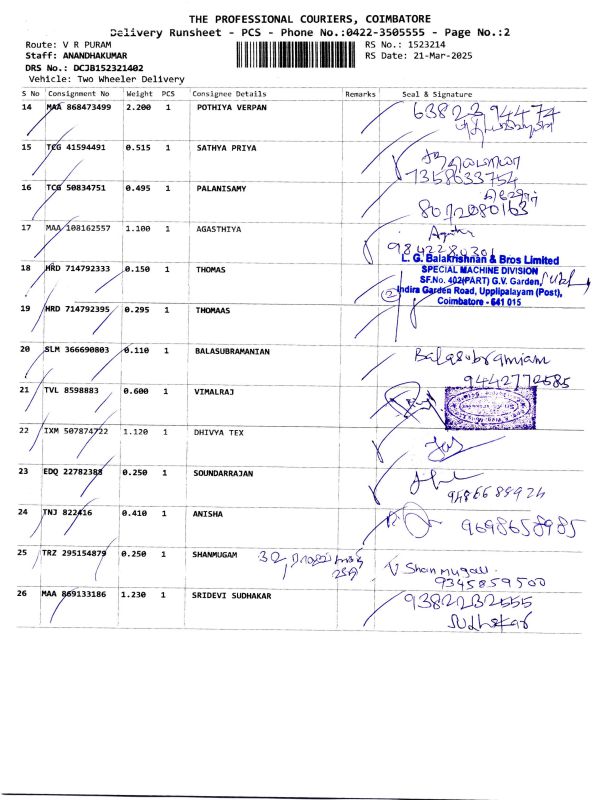 THE PROFESSIONAL COURIERS, COIMBATORE
Delivery Runsheet - PCS - Phone No.:0422-3505555 - Page No.:2
Route: V R PURAM
RS No.: 1523214
Staff: ANANDHAKUMAR
RS Date: 21-Mar-2025
DRS No.: DCJB152321402
Vehicle: Two Wheeler Delivery
S No Consignment No Weight PCS Consignee Details Remarks Seal & Signature
14 MAA 868473499 2.200 1 POTHIYA VERPAN 63823 94474
15 TCG 41594491 0.515 1 SATHYA PRIYA
7358633754
16 TCG 50834751 0.495 1 PALANISAMY
8072080163
17 MAA 108162557 1.100 1 AGASTHIYA
9842280301
L. G. Balakrishnan & Bros Limited
18 HRD 714792333 0.150 1 THOMAS SPECIAL MACHINE DIVISION
SF.No. 402(PART) G.V. Garden,
Indira Garden Road, Upplipalayam (Post),
Coimbatore - 641 015
19 HRD 714792395 0.295 1 THOMAAS
20 SLM 366690803 0.110 1 BALASUBRAMANIAN Balasubramiam
9442770585
21 TVL 8598883 0.600 1 VIMALRAJ
22 IXM 507874722 1.120 1 DHIVYA TEX
23 EDQ 22782388 0.250 1 SOUNDARRAJAN
9486689924
24 TNJ 822416 0.410 1 ANISHA 9698658985
25 TRZ 295154879 0.250 1 SHANMUGAM 32 V Shanmugam
9345859500
26 MAA 869133186 1.230 1 SRIDEVI SUDHAKAR 9382232555
Sudhakar